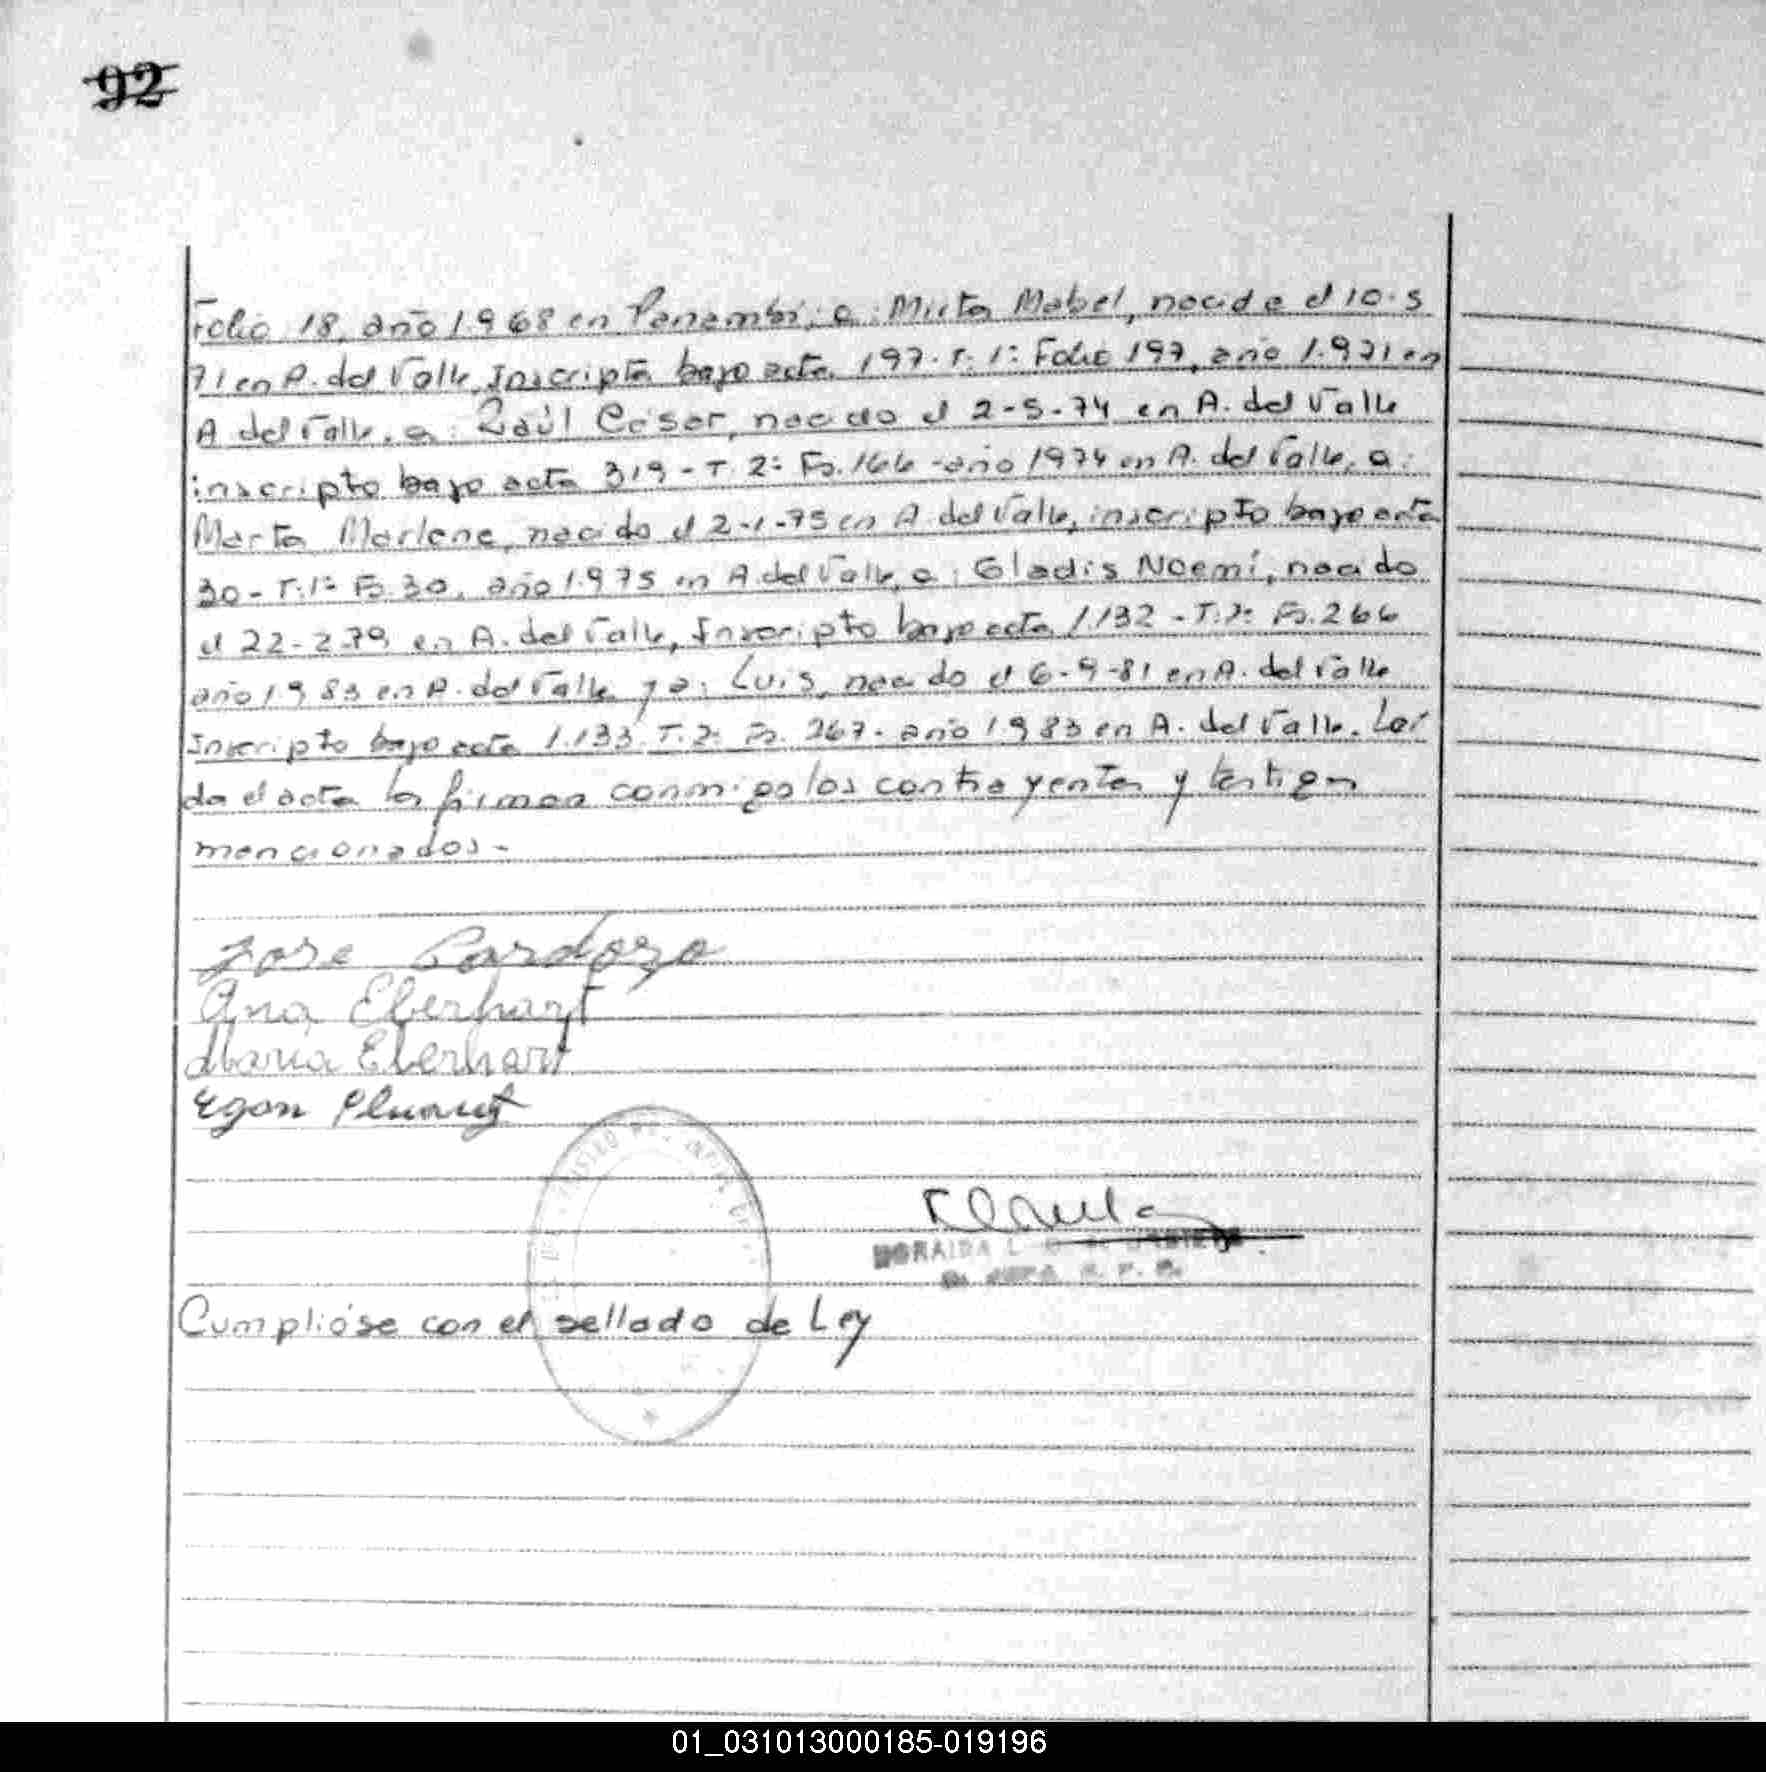 92
Folio 18, año 1968 en Panambí; a: Mirta Mabel, nacida el 10-5
71 en A. del Valle, Inscripta bajo acta 197-T. 1º Folio 197, año 1.971 en
A del Valle, a: Raúl César, nacido el 2-5-74 en A. del Valle
inscripto bajo acta 319-T. 2º Fo. 166-año 1974 en A. del Valle, a:
Marta Marlene, nacido el 2-1-75 en A. del Valle, inscripto bajo acta
30-T. 1º Fo. 30, año 1.975 en A. del Valle, a: Gladis Noemí, nacido
el 22-2-79 en A. del Valle, Inscripto bajo acta 1.132-T. 2º Fo. 266
año 1.983 en A. del Valle y a: Luis, nacido el 6-9-81 en A. del Valle
Inscripto bajo acta 1.133 T. 2º Fo. 267-año 1.983 en A. del Valle. Leí
da el acta la firman conmigo los contrayentes y testigos
mencionados-
Jose Cardozo
Ana Eberhart
Maria Eberhart
Egon
Cumplióse con el sellado de Ley
01_031013000185-019196